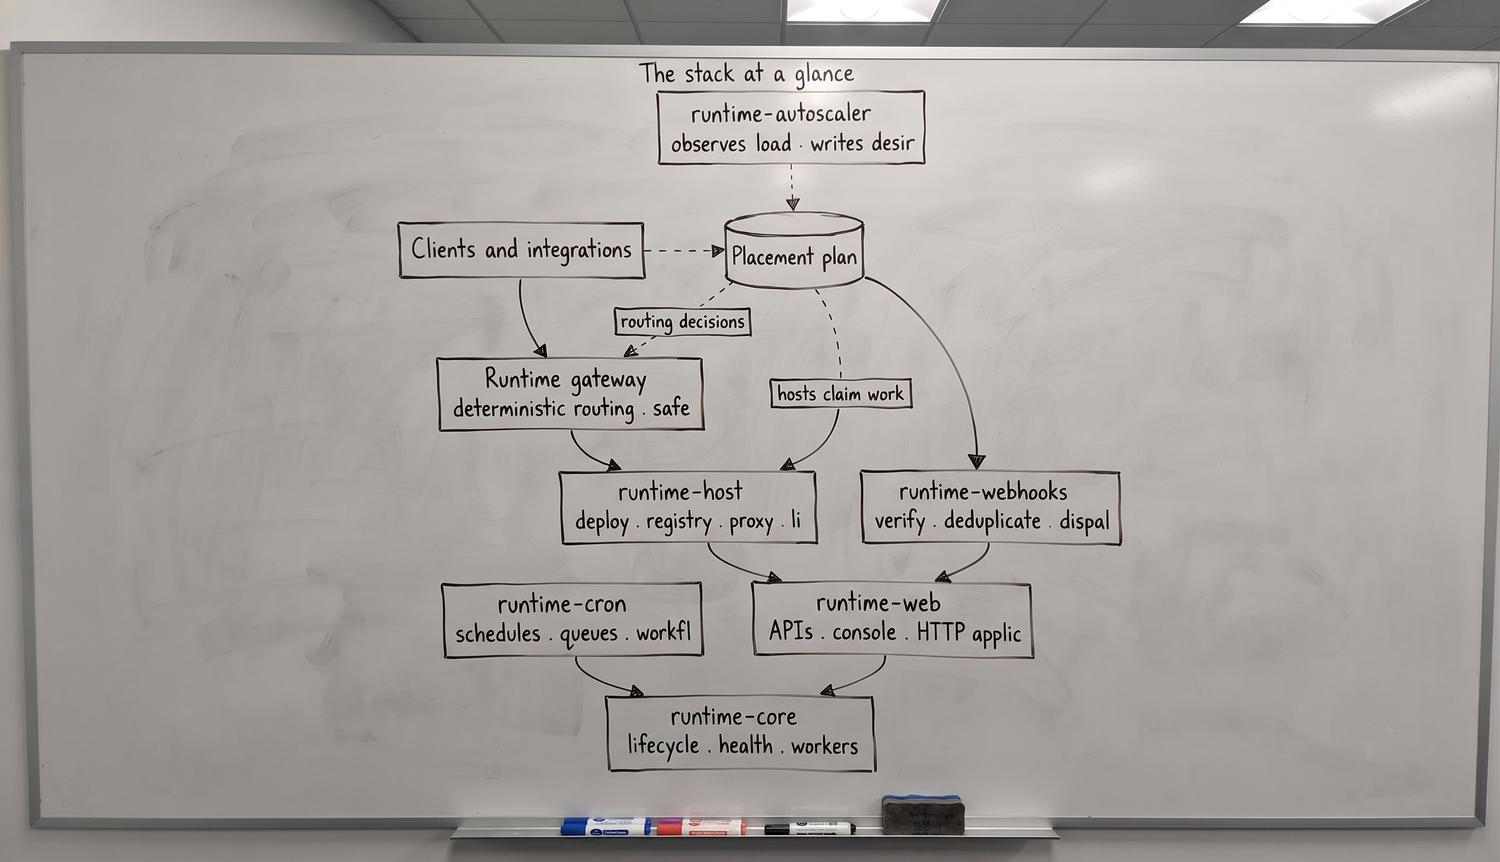 The stack at a glance
runtime-autoscaler
observes load · writes desir
Clients and integrations
Placement plan
routing decisions
Runtime gateway
deterministic routing . safe
hosts claim work
runtime-host
deploy . registry . proxy . li
runtime-webhooks
verify . deduplicate . dispal
runtime-cron
schedules . queues . workfl
runtime-web
APIs . console . HTTP applic
runtime-core
lifecycle . health . workers